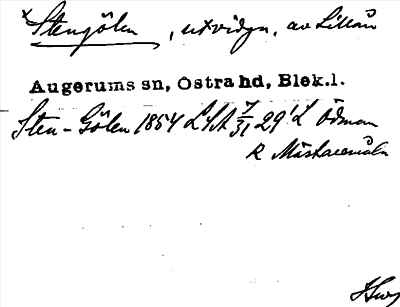 x Stengölen, utvidgn. av Lillån
Augerums sn, Östra hd, Blek.l.
Sten-Gölen 1854 LSA 7/31 29' L Ödman
R Måstaremåla